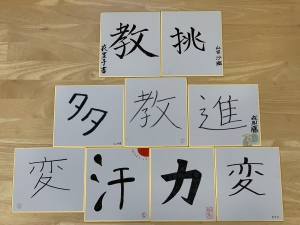 教 挑
多 教 進
変 汗 力 変